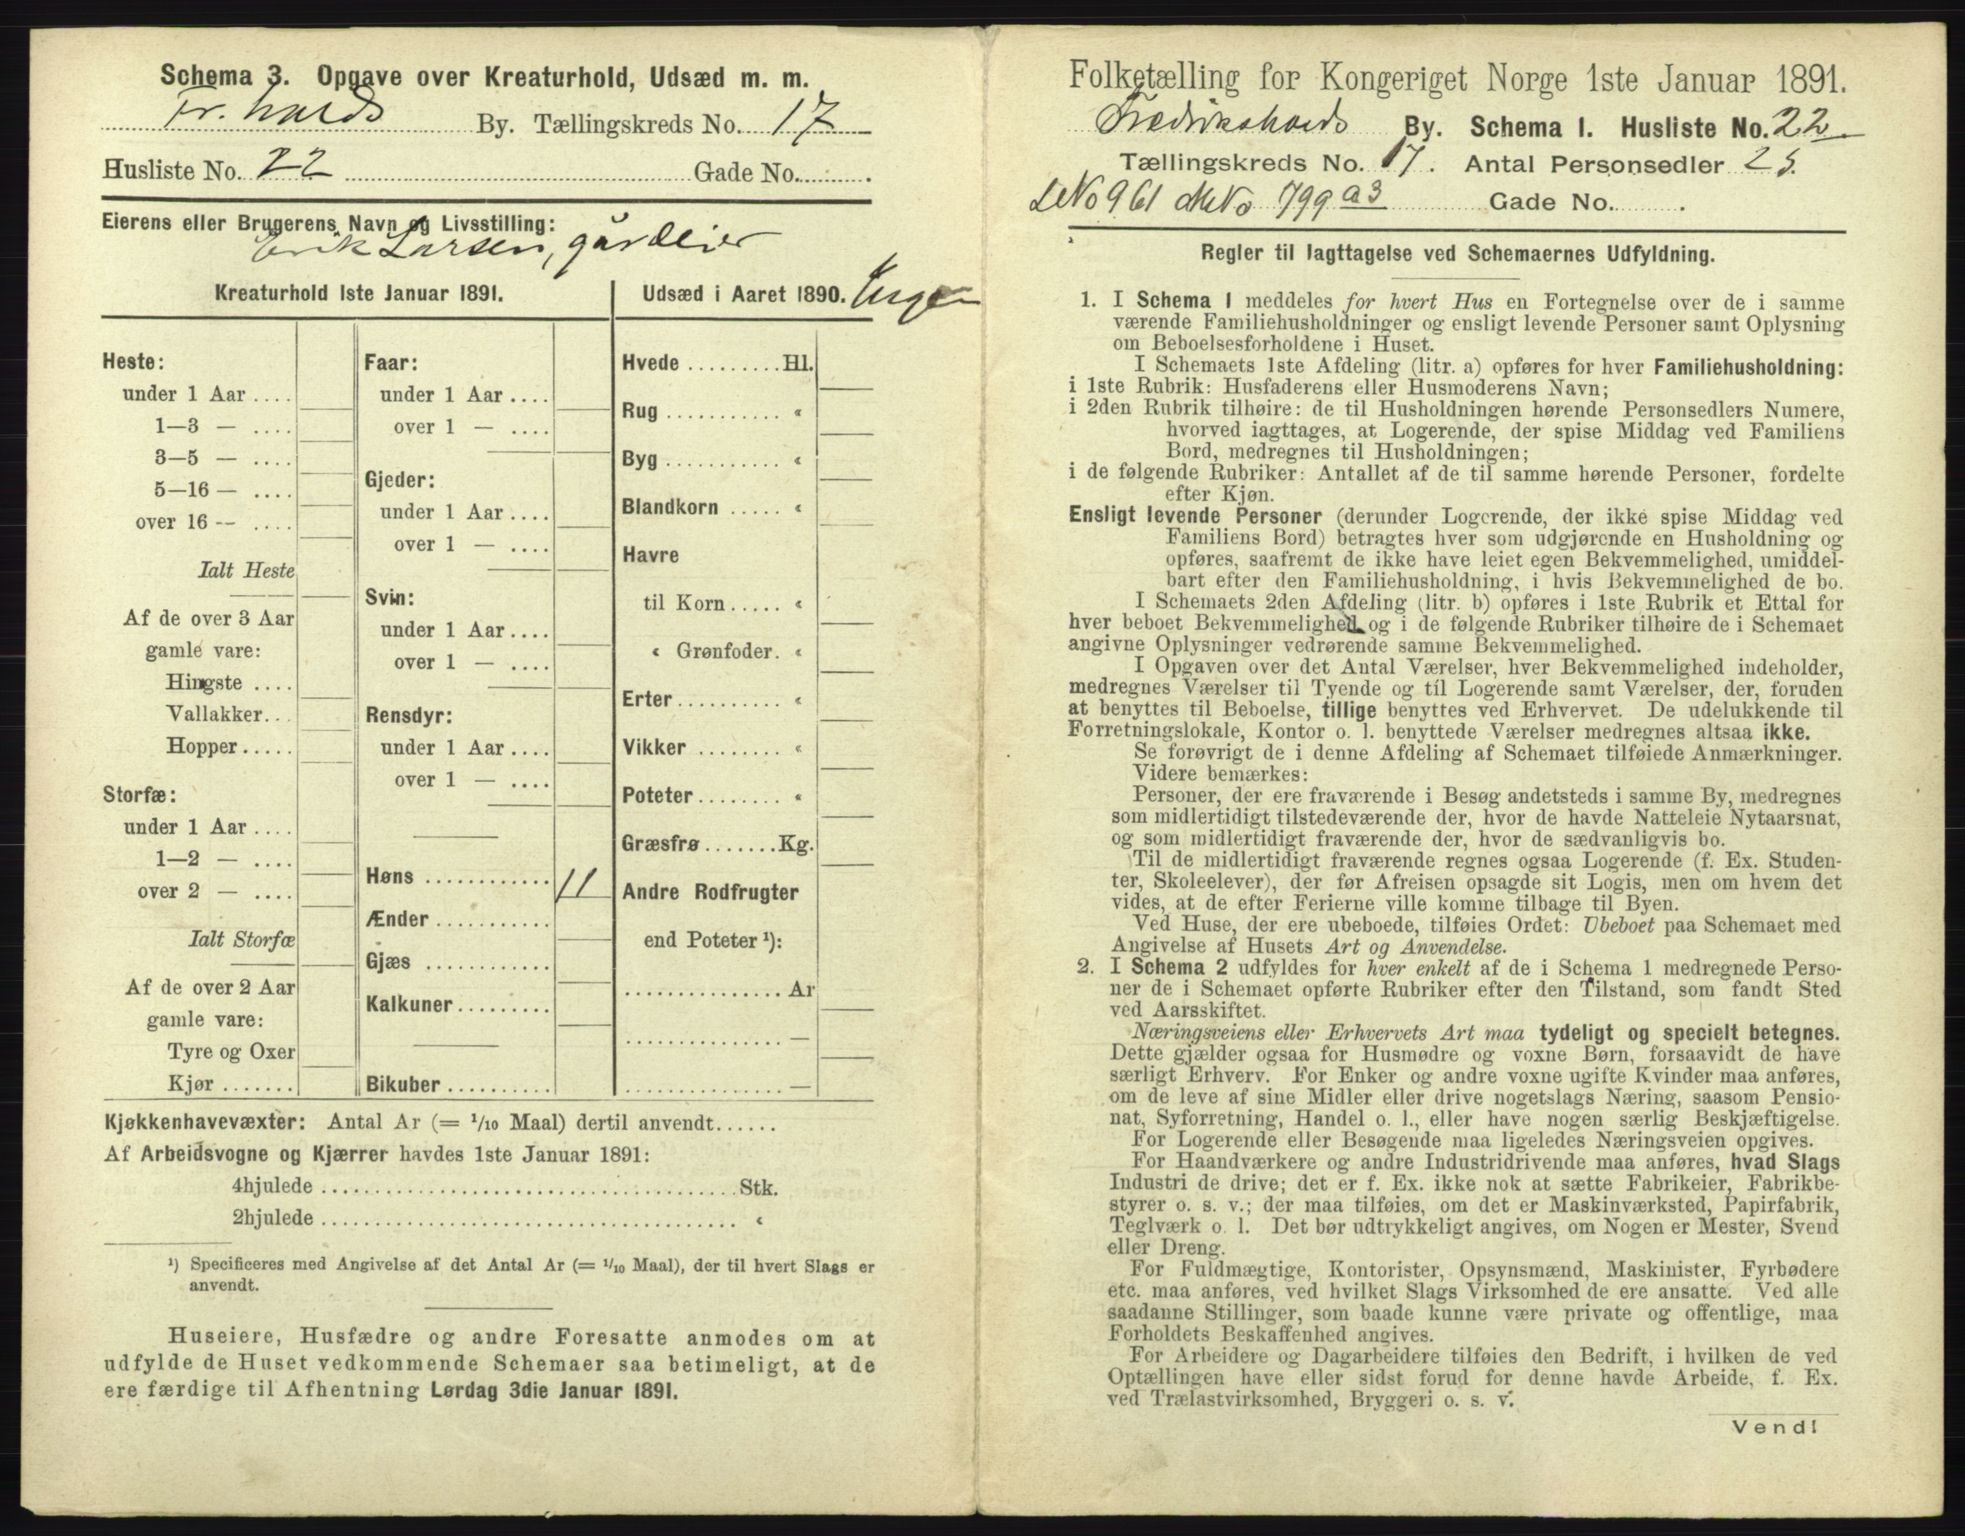 Schema 3. Opgave over Kreaturhold, Udsæd m. m.
Fr.halds By. Tællingskreds No. 17
Husliste No. 22 Gade No. .
Eierens eller Brugerens Navn og Livsstilling:
Erik Larsen, gårdeier
Kreaturhold 1ste Januar 1891.
Heste:
under 1 Aar ....
1—3 — ....
3—5 — ....
5—16 — ....
over 16 — ....
Ialt Heste
Af de over 3 Aar
gamle vare:
Hingste ....
Vallakker...
Hopper.....
Storfæ:
under 1 Aar ....
1—2 — ....
over 2 — ....
Ialt Storfæ
Af de over 2 Aar
gamle vare:
Tyre og Oxer
Kjør .......
Faar:
under 1 Aar ....
over 1 — ....
Gjeder:
under 1 Aar ....
over 1 — ....
Svin:
under 1 Aar ....
over 1 — ....
Rensdyr:
under 1 Aar ....
over 1 — ....
Høns ............ 11
Ænder ...........
Gjæs ............
Kalkuner .........
Bikuber ..........
Udsæd i Aaret 1890. Ingen
Hvede ......... Hl.
Rug ........... "
Byg ........... "
Blandkorn ..... "
Havre
til Korn ..... "
" Grønfoder. "
Erter .......... "
Vikker ......... "
Poteter ........ "
Græsfrø ....... Kg.
Andre Rodfrugter
end Poteter ¹):
............... Ar
............... —
............... —
Kjøkkenhavevæxter: Antal Ar (= 1/10 Maal) dertil anvendt......
Af Arbeidsvogne og Kjærrer havdes 1ste Januar 1891:
4hjulede ........................................ Stk.
2hjulede ........................................ "
¹) Specificeres med Angivelse af det Antal Ar (= 1/10 Maal), der til hvert Slags er
anvendt.
Huseiere, Husfædre og andre Foresatte anmodes om at
udfylde de Huset vedkommende Schemaer saa betimeligt, at de
ere færdige til Afhentning Lørdag 3die Januar 1891.
Folketælling for Kongeriget Norge 1ste Januar 1891.
Fredrikshalds By. Schema 1. Husliste No. 22
Tællingskreds No. 17. Antal Personsedler 25.
LNo 961 MNo 799 a3 Gade No. .
Regler til Iagttagelse ved Schemaernes Udfyldning.
1. I Schema 1 meddeles for hvert Hus en Fortegnelse over de i samme
værende Familiehusholdninger og ensligt levende Personer samt Oplysning
om Beboelsesforholdene i Huset.
I Schemaets 1ste Afdeling (litr. a) opføres for hver Familiehusholdning:
i 1ste Rubrik: Husfaderens eller Husmoderens Navn;
i 2den Rubrik tilhøire: de til Husholdningen hørende Personsedlers Numere,
hvorved iagttages, at Logerende, der spise Middag ved Familiens
Bord, medregnes til Husholdningen;
i de følgende Rubriker: Antallet af de til samme hørende Personer, fordelte
efter Kjøn.
Ensligt levende Personer (derunder Logerende, der ikke spise Middag ved
Familiens Bord) betragtes hver som udgjørende en Husholdning og
opføres, saafremt de ikke have leiet egen Bekvemmelighed, umiddel-
bart efter den Familiehusholdning, i hvis Bekvemmelighed de bo.
I Schemaets 2den Afdeling (litr. b) opføres i 1ste Rubrik et Ettal for
hver beboet Bekvemmelighed og i de følgende Rubriker tilhøire de i Schemaet
angivne Oplysninger vedrørende samme Bekvemmelighed.
I Opgaven over det Antal Værelser, hver Bekvemmelighed indeholder,
medregnes Værelser til Tyende og til Logerende samt Værelser, der, foruden
at benyttes til Beboelse, tillige benyttes ved Erhvervet. De udelukkende til
Forretningslokale, Kontor o. l. benyttede Værelser medregnes altsaa ikke.
Se forøvrigt de i denne Afdeling af Schemaet tilføiede Anmærkninger.
Videre bemærkes:
Personer, der ere fraværende i Besøg andetsteds i samme By, medregnes
som midlertidigt tilstedeværende der, hvor de havde Natteleie Nytaarsnat,
og som midlertidigt fraværende der, hvor de sædvanligvis bo.
Til de midlertidigt fraværende regnes ogsaa Logerende (f. Ex. Studen-
ter, Skoleelever), der før Afreisen opsagde sit Logis, men om hvem det
vides, at de efter Ferierne ville komme tilbage til Byen.
Ved Huse, der ere ubeboede, tilføies Ordet: Ubeboet paa Schemaet med
Angivelse af Husets Art og Anvendelse.
2. I Schema 2 udfyldes for hver enkelt af de i Schema 1 medregnede Perso-
ner de i Schemaet opførte Rubriker efter den Tilstand, som fandt Sted
ved Aarsskiftet.
Næringsveiens eller Erhvervets Art maa tydeligt og specielt betegnes.
Dette gjælder ogsaa for Husmødre og voxne Børn, forsaavidt de have
særligt Erhverv. For Enker og andre voxne ugifte Kvinder maa anføres,
om de leve af sine Midler eller drive nogetslags Næring, saasom Pensio-
nat, Syforretning, Handel o. l., eller have nogen særlig Beskjæftigelse.
For Logerende eller Besøgende maa ligeledes Næringsveien opgives.
For Haandværkere og andre Industridrivende maa anføres, hvad Slags
Industri de drive; det er f. Ex. ikke nok at sætte Fabrikeier, Fabrikbe-
styrer o. s. v.; der maa tilføies, om det er Maskinværksted, Papirfabrik,
Teglværk o. l. Det bør udtrykkeligt angives, om Nogen er Mester, Svend
eller Dreng.
For Fuldmægtige, Kontorister, Opsynsmænd, Maskinister, Fyrbødere
etc. maa anføres, ved hvilket Slags Virksomhed de ere ansatte. Ved alle
saadanne Stillinger, som baade kunne være private og offentlige, maa
Forholdets Beskaffenhed angives.
For Arbeidere og Dagarbeidere tilføies den Bedrift, i hvilken de ved
Optællingen have eller sidst forud for denne havde Arbeide, f. Ex.
ved Trælastvirksomhed, Bryggeri o. s. v.
Vend!